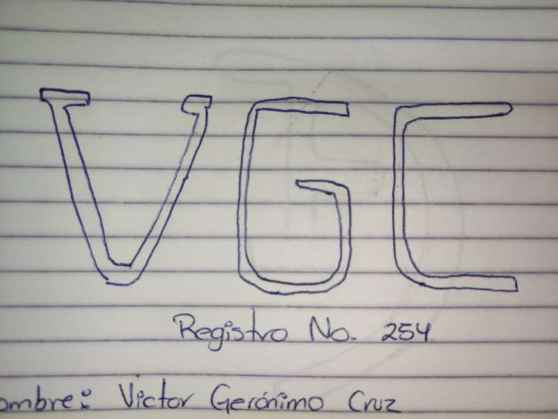 VGC
Registro No. 254
ombre: Victor Gerónimo Cruz